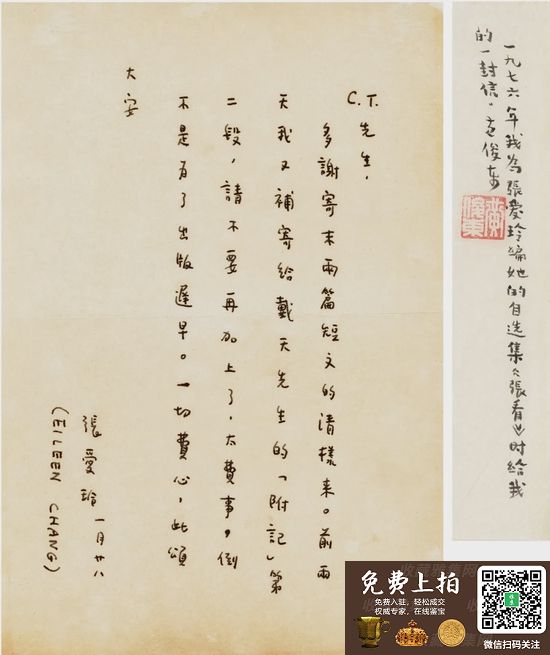 C.T.先生,
多謝寄來兩篇短文的清樣來。前兩
天我又補寄給戴天先生的「附記」第
二段,請不要再加上了,太費事,倒
不是為了出版遲早。一切費心,此頌
大安
張愛玲 一月廿八
(EILEEN CHANG)
一九七六年我为張愛玲編她的自选集《張看》时给我
的一封信。黄俊东
黄俊東
免费上拍
免费入驻,轻松成交
权威专家,在线鉴宝
微信扫码关注